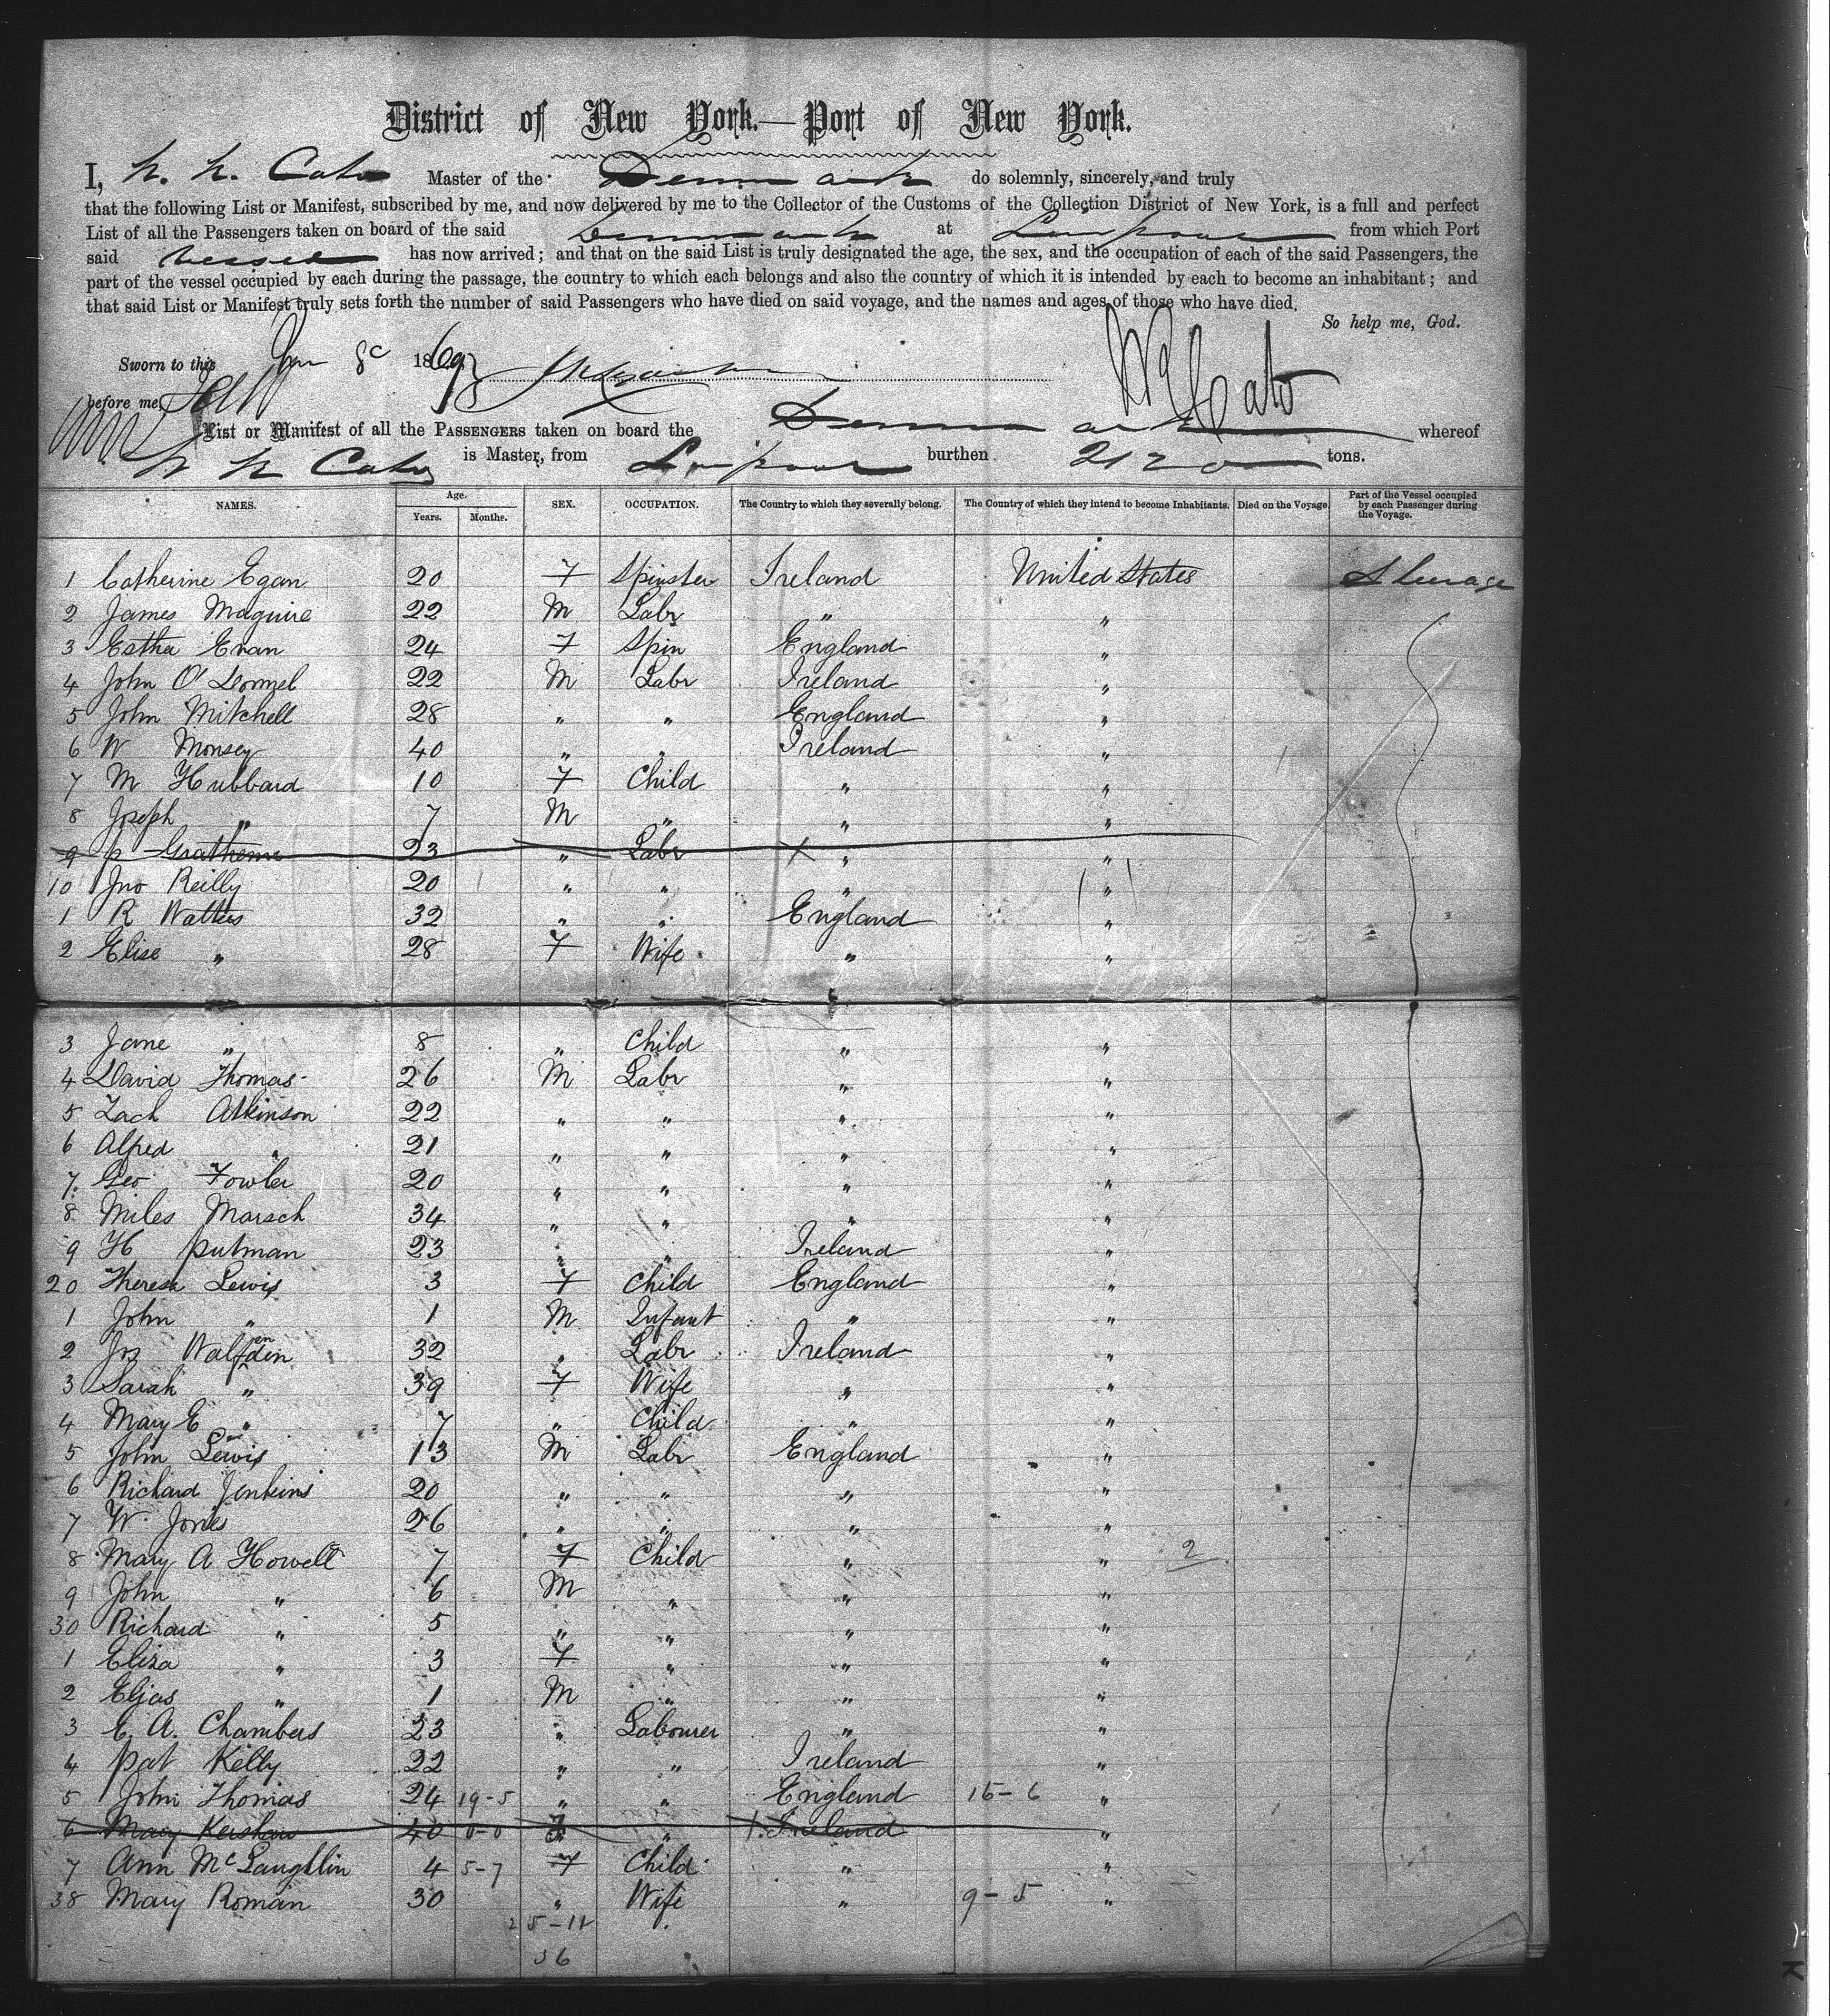 District of New York.—Port of New York.
I, Master of the Denmark do solemnly, sincerely, and truly
that the following List or Manifest, subscribed by me, and now delivered by me to the Collector of the Customs of the Collection District of New York, is a full and perfect
List of all the Passengers taken on board of the said Denmark at Liverpool from which Port
said Vessel has now arrived; and that on the said List is truly designated the age, the sex, and the occupation of each of the said Passengers, the
part of the vessel occupied by each during the passage, the country to which each belongs and also the country of which it is intended by each to become an inhabitant; and
that said List or Manifest truly sets forth the number of said Passengers who have died on said voyage, and the names and ages of those who have died.
So help me, God.
Sworn to this 1869
before me,
List or Manifest of all the PASSENGERS taken on board the Denmark whereof
is Master, from Liverpool burthen tons.
NAMES. Age. Years. Months. SEX. OCCUPATION. The Country to which they severally belong. The Country of which they intend to become Inhabitants. Died on the Voyage. Part of the Vessel occupied by each Passenger during the Voyage.
1 Catherine Egan 20 F Spinster Ireland United States Steerage
2 James Maguire 22 M Labr " "
3 Esther Evan 24 F Spin England "
4 John O'Donnel 22 M Labr Ireland "
5 John Mitchell 28 " " England "
6 W Monsey 40 " " Ireland "
7 M Hubbard 10 F Child " "
8 Joseph " 7 M " " "
9 P 23 " Labr " "
10 Jno Reilly 20 " " " "
1 R Watters 32 " " England "
2 Elise " 28 F Wife " "
3 Jane " 8 " Child " "
4 David Thomas 26 M Labr " "
5 Zach Atkinson 22 " " " "
6 Alfred " 21 " " " "
7 Geo Fowler 20 " " " "
8 Miles Marsch 34 " " " "
9 H Putman 23 " " Ireland "
20 Theresa Lewis 3 F Child England "
1 John " 1 M Infant " "
2 Jos 32 " Labr Ireland "
3 Sarah " 39 F Wife " "
4 Mary E " 7 " Child " "
5 John Lewis 13 M Labr England "
6 Richard Jenkins 20 " " " "
7 W. Jones 26 " " " "
8 Mary A Howell 7 F Child " " 2
9 John " 6 M " " "
30 Richard " 5 " " " "
1 Eliza " 3 F " " "
2 Eljas " 1 M " " "
3 E. A. Chambers 23 " Labourer " "
4 Pat Kelly 22 " " Ireland "
5 John Thomas 24 19-5 " " England 15-6 "
6 Mary Kershaw 40 0-0 F " Ireland "
7 Ann McLaughlin 4 5-7 F Child " "
38 Mary Roman 30 " Wife " 9-5 "
36